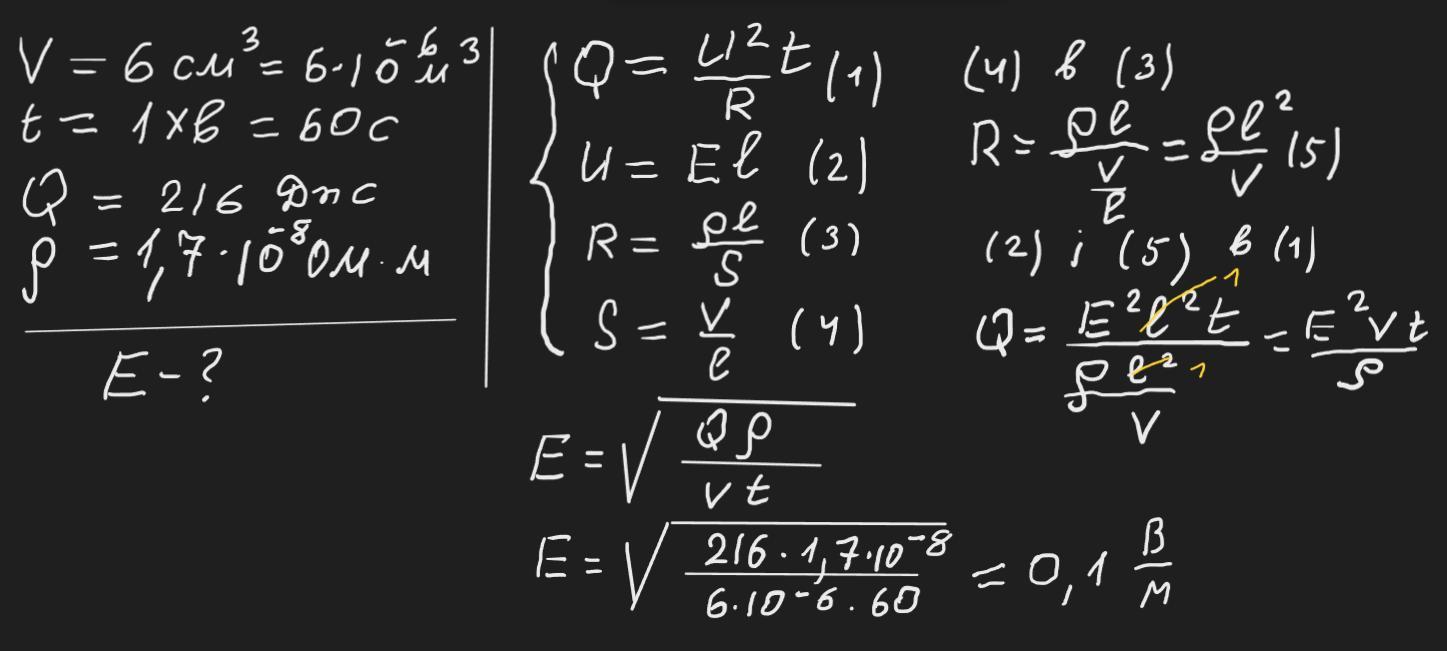 V = 6 см³ = 6·10⁻⁶ м³
t = 1 хв = 60 с
Q = 216 Дж
ρ = 1,7·10⁻⁸ Ом·м
E - ?
Q = U²/R t (1)
U = El (2)
R = ρl/S (3)
S = V/l (4)
(4) в (3)
R = ρl/(V/l) = ρl²/V (5)
(2) і (5) в (1)
Q = E²l²t/(ρl²/V) = E²Vt/ρ
1
1
E = √(Qρ/(Vt))
E = √(216·1,7·10⁻⁸/(6·10⁻⁶·60)) = 0,1 В/м